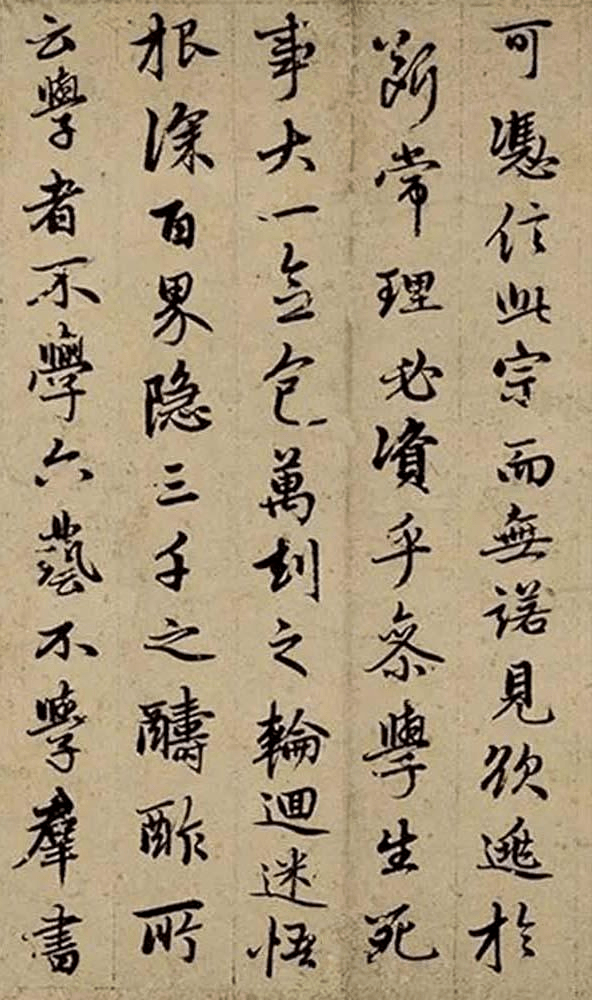 可憑信此宗而無諾見欲遯於
斯常理必資乎叅學生死
事大一念包萬刼之輪迴迷悟
根深百界隐三千之醻酢所
云學者不學六藝不學羣書